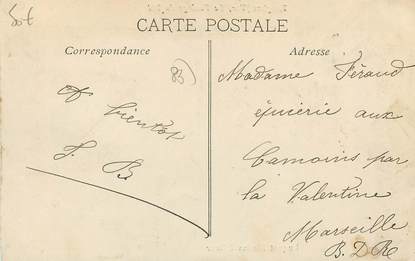 50€
CARTE POSTALE
Correspondance
Adresse
83)
A bientot
J. B.
Madame Féraud
épicerie aux
Camoins par
la Valentine
Marseille
B.D.R